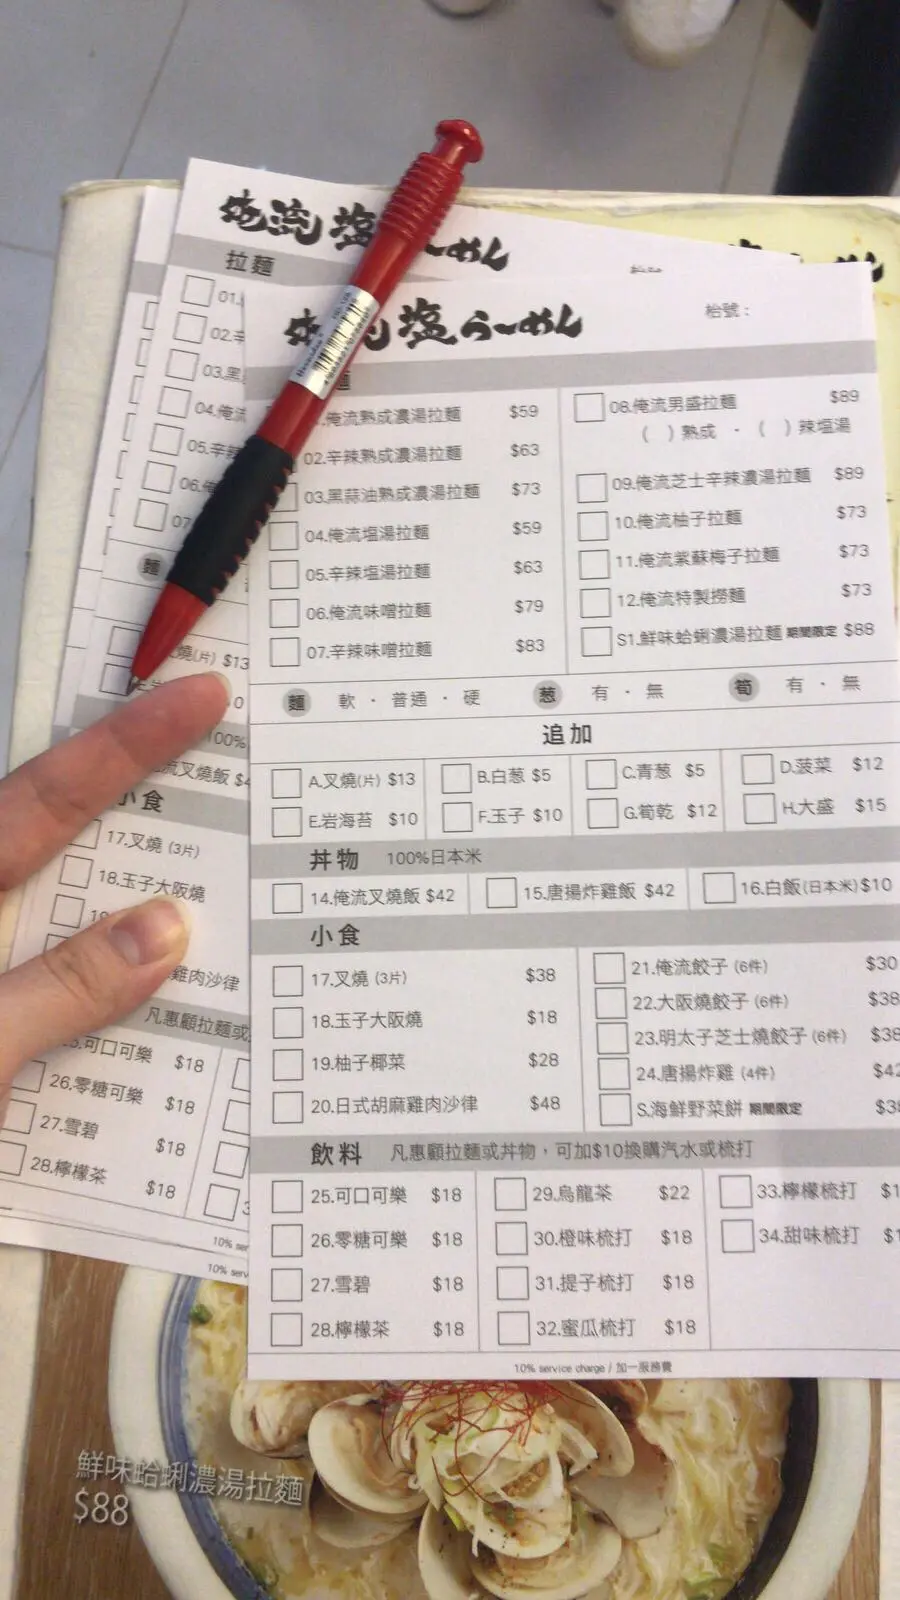 俺流塩らーめん
拉麵
01.
02.辛
03.黑
04.俺流
05.辛辣
06.俺
07
麵
燒(片) $13
100%
流叉燒飯 $4
小食
17.叉燒 (3片)
18.玉子大阪燒
雞肉沙律
凡惠顧拉麵或
可口可樂 $18
26.零糖可樂 $18
27.雪碧 $18
28.檸檬茶 $18
10% ser
10% serv
塩らーめん
枱號：
麵
俺流熟成濃湯拉麵 $59
02.辛辣熟成濃湯拉麵 $63
03.黑蒜油熟成濃湯拉麵 $73
04.俺流塩湯拉麵 $59
05.辛辣塩湯拉麵 $63
06.俺流味噌拉麵 $79
07.辛辣味噌拉麵 $83
08.俺流男盛拉麵 $89
( )熟成 · ( )辣塩湯
09.俺流芝士辛辣濃湯拉麵 $89
10.俺流柚子拉麵 $73
11.俺流紫蘇梅子拉麵 $73
12.俺流特製撈麵 $73
S1.鮮味蛤蜊濃湯拉麵 期間限定 $88
麵 軟 · 普通 · 硬 葱 有 · 無 筍 有 · 無
追加
A.叉燒(片) $13 B.白葱 $5 C.青葱 $5 D.菠菜 $12
E.岩海苔 $10 F.玉子 $10 G.筍乾 $12 H.大盛 $15
丼物 100%日本米
14.俺流叉燒飯 $42 15.唐揚炸雞飯 $42 16.白飯(日本米) $10
小食
17.叉燒 (3片) $38
18.玉子大阪燒 $18
19.柚子椰菜 $28
20.日式胡麻雞肉沙律 $48
21.俺流餃子 (6件) $30
22.大阪燒餃子 (6件) $38
23.明太子芝士燒餃子 (6件) $38
24.唐揚炸雞 (4件) $42
S.海鮮野菜餅 期間限定 $3
飲料 凡惠顧拉麵或丼物，可加$10換購汽水或梳打
25.可口可樂 $18
26.零糖可樂 $18
27.雪碧 $18
28.檸檬茶 $18
29.烏龍茶 $22
30.橙味梳打 $18
31.提子梳打 $18
32.蜜瓜梳打 $18
33.檸檬梳打 $1
34.甜味梳打 $1
10% service charge / 加一服務費
鮮味蛤蜊濃湯拉麵
$88